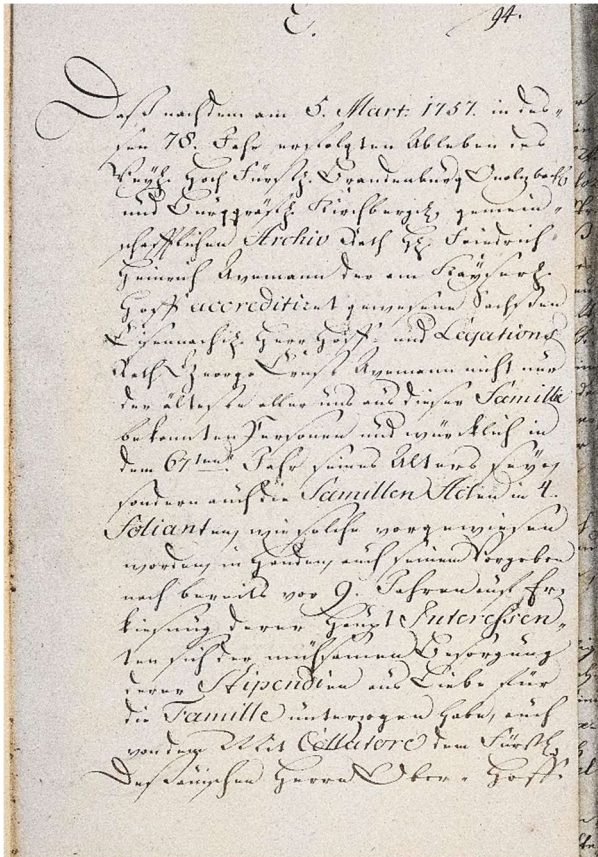 E. 94.
Daß nachdem am 5. Mart: 1757. in des-
sen 78. Jahr erfolgten Ableben des
Weyl. Hoch Fürstl. Brandenburg Onolzbach.
und Burggräfl. Kirchbergis. gemein-
schafftlichen Archiv Rath H. Friedrich
Heinrich Avemann der am Kayserl.
Hoff accreditirt gewesene Sachsen
Eisenachis. Herr Hoff- und Legations
Rath George Ernst Avemann nicht nur
der älteste aller uns aus dieser Famille
bekannten Personen und würcklich in
dem 67ten Jahr seines Alters seye,
sondern auch die Famillen Acten in 4.
Folianten, wie solche vorgewiesen
worden, in Handen, auch seinem Vorgeben
nach bereits vor 9. Jahren auf Er-
kiesung derer Haupt Interessen-
ten sich der mühsamen Besorgung
derer Stipendien aus Liebe für
die Famille unterzogen habe, auch
von dem Mit Collatore dem Fürstl.
Herrn Ober-Hoff-